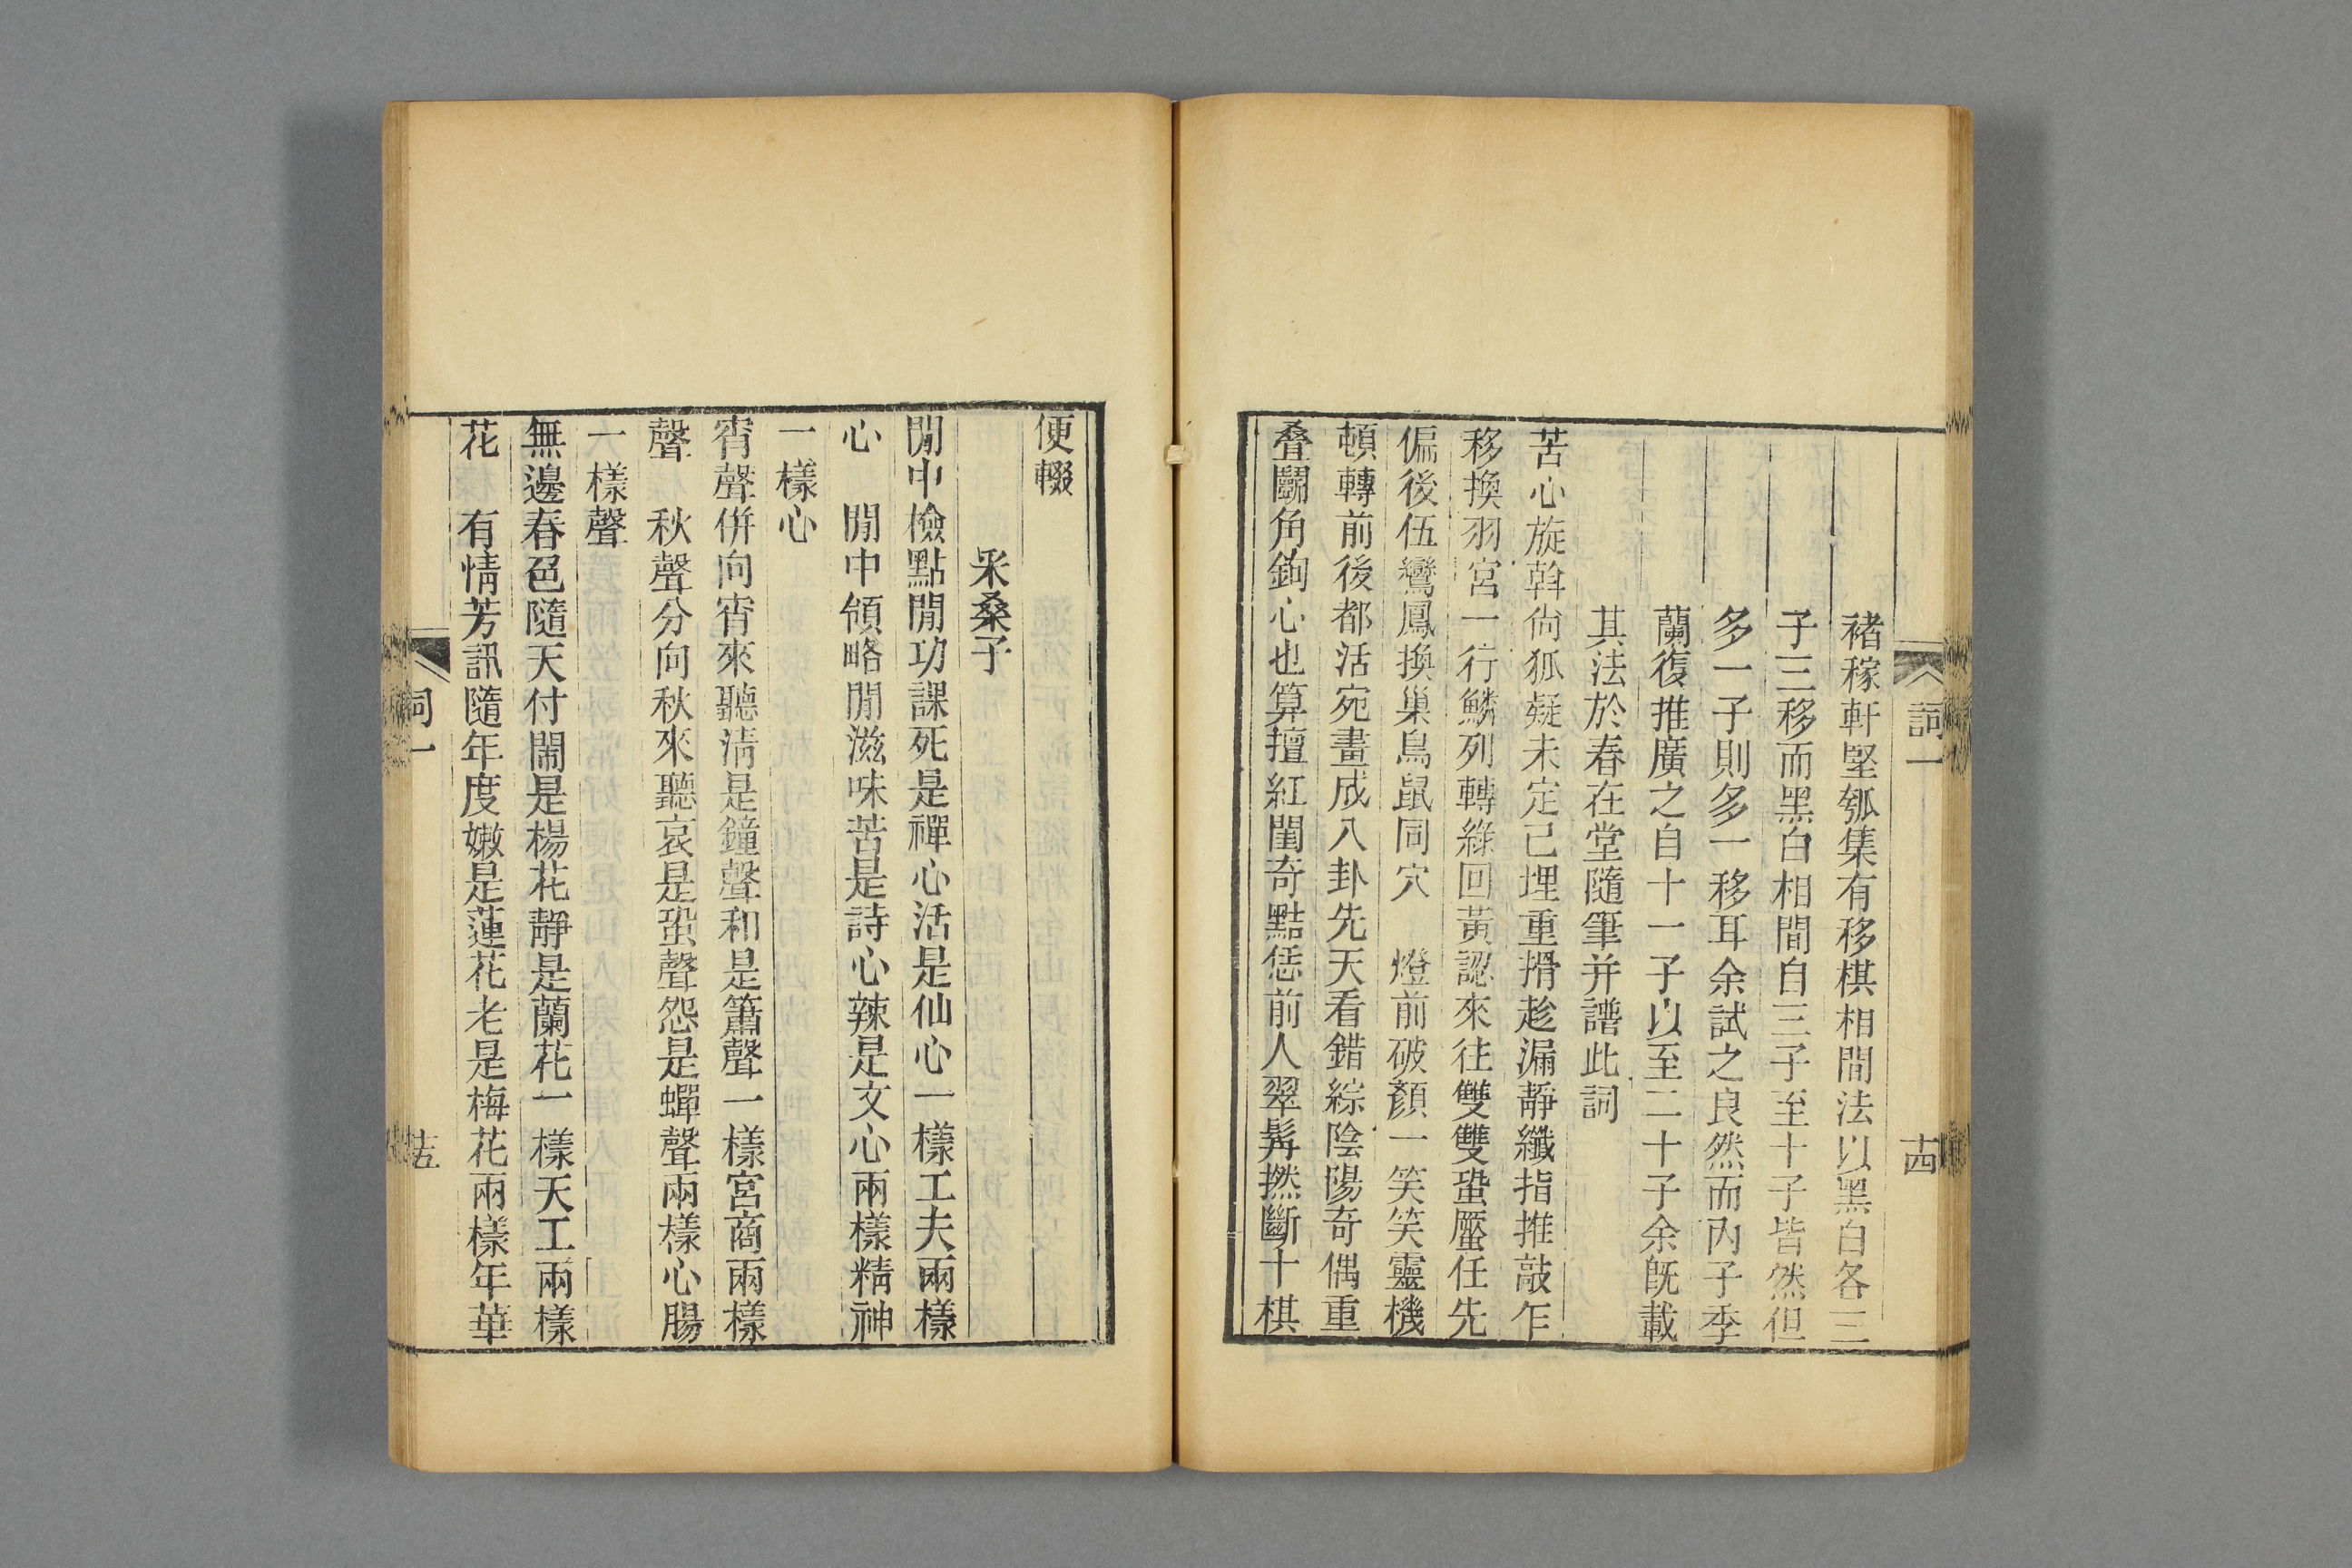 詞一
十四
褚稼軒堅瓠集有移棋相間法以黑白各三
子三移而黑白相間自三子至十子皆然但
多一子則多一移耳余試之良然而內子季
蘭復推廣之自十一子以至二十子余旣載
其法於春在堂隨筆并譜此詞
苦心旋斡尙狐疑未定已埋重搰趁漏靜纖指推敲乍
移換羽宮一行鱗列轉綠回黃認來往雙雙蛩蟨任先
偏後伍鸞鳳換巢鳥鼠同穴　燈前破顏一笑笑靈機
頓轉前後都活宛畫成八卦先天看錯綜陰陽奇偶重
叠鬭角鉤心也算擅紅閨奇黠恁前人翠髯撚斷十棋
便輟
采桑子
閒中檢點閒功課死是禪心活是仙心一樣工夫兩樣
心　閒中領略閒滋味苦是詩心辣是文心兩樣精神
一樣心
宵聲併向宵來聽淸是鐘聲和是簫聲一樣宮商兩樣
聲　秋聲分向秋來聽哀是蛩聲怨是蟬聲兩樣心腸
一樣聲
無邊春色隨天付鬧是楊花靜是蘭花一樣天工兩樣
花　有情芳訊隨年度嫩是蓮花老是梅花兩樣年華
詞一
十五